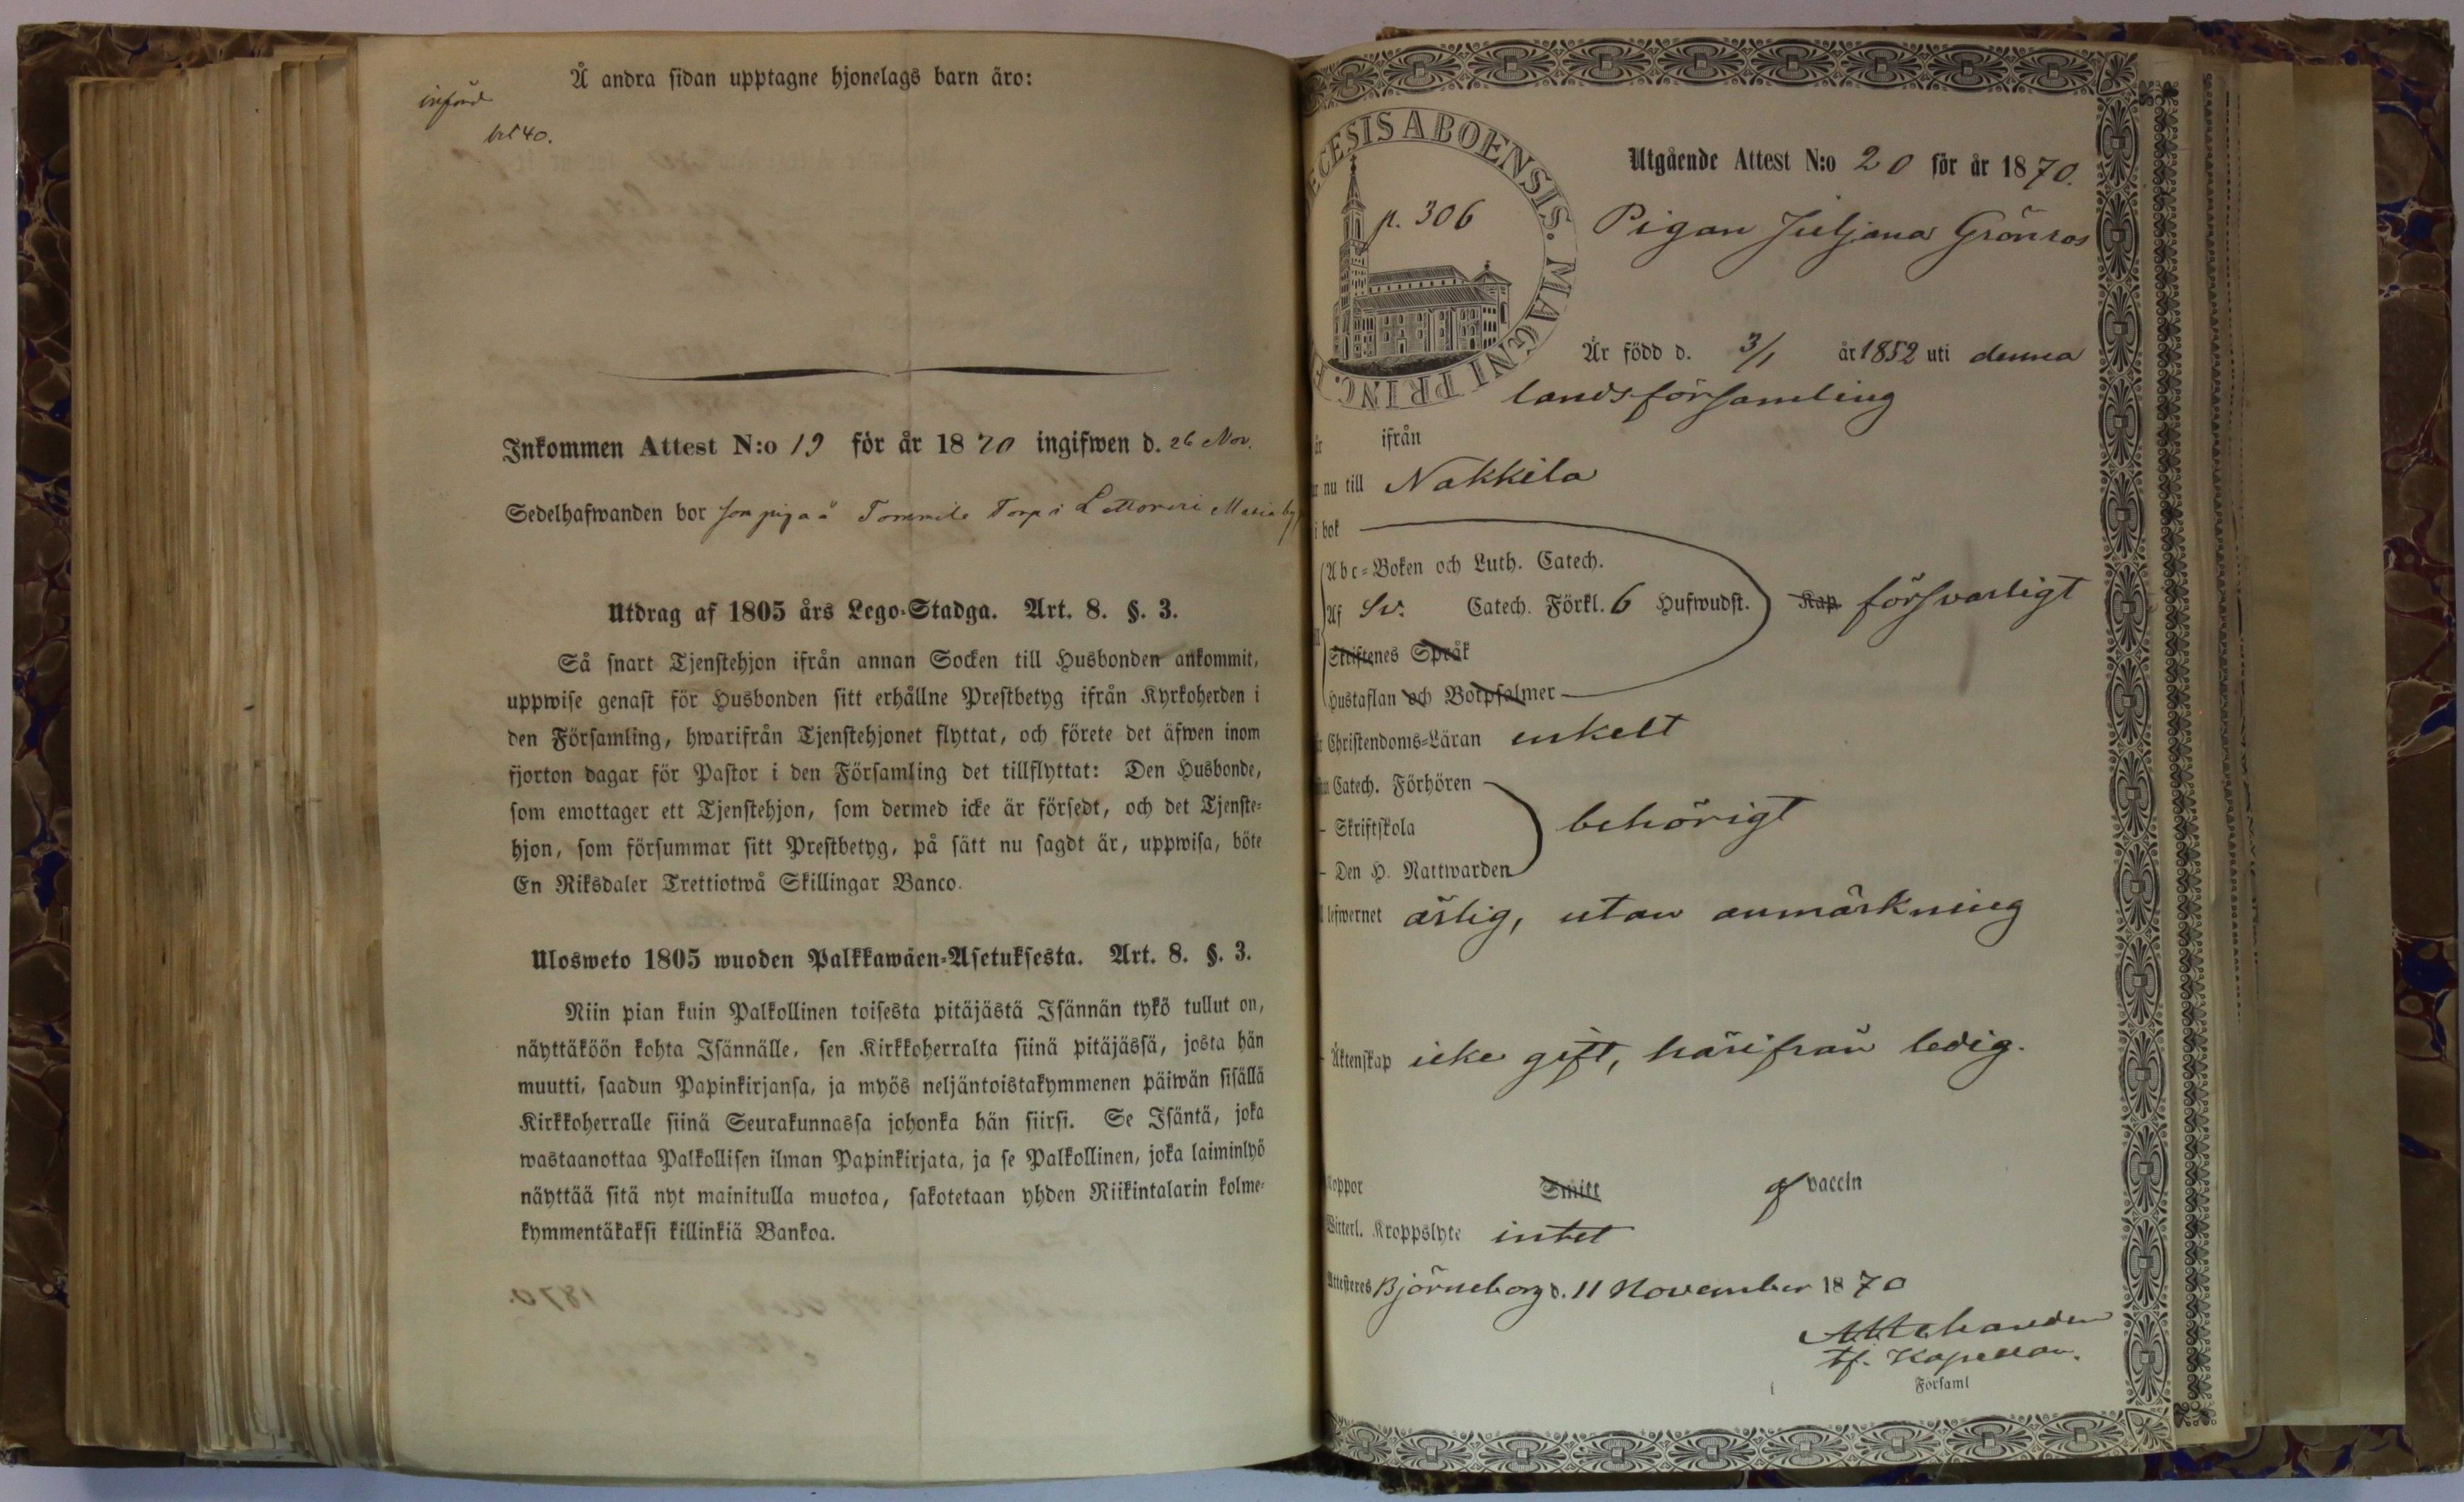 Å andra sidan upptagne hjonelags barn äro:
införd
bl 40.
Inkommen Attest N:o 19 för år 1870 ingifwen d. 26 Nov.
Sedelhafwanden bor som piga å Torp i
Utdrag af 1805 års Lego-Stadga. Art. 8. §. 3.
Så snart Tjenstehjon ifrån annan Socken till Husbonden ankommit,
uppwise genast för Husbonden sitt erhållne Prestbetyg ifrån Kyrkoherden i
den Församling, hwarifrån Tjenstehjonet flyttat, och förete det äfwen inom
fjorton dagar för Pastor i den Församling det tillflyttat: Den Husbonde,
som emottager ett Tjenstehjon, som dermed icke är försedt, och det Tjenste-
hjon, som försummar sitt Prestbetyg, på sätt nu sagdt är, uppwisa, böte
En Riksdaler Trettiotwå Skillingar Banco.
Ulosweto 1805 wuoden Palkkawäen-Asetuksesta. Art. 8. §. 3.
Niin pian kuin Palkollinen toisesta pitäjästä Isännän tykö tullut on,
näyttäköön kohta Isännälle, sen Kirkkoherralta siinä pitäjässä, josta hän
muutti, saadun Papinkirjansa, ja myös neljäntoistakymmenen päiwän sisällä
Kirkkoherralle siinä Seurakunnassa johonka hän siirsi. Se Isäntä, joka
wastaanottaa Palkollisen ilman Papinkirjata, ja se Palkollinen, joka laiminlyö
näyttää sitä nyt mainitulla muotoa, sakotetaan yhden Riikintalarin kolme-
kymmentäkaksi killinkiä Bankoa.
ECESIS ABOENSIS. MAGNI PRINC. F
p. 306
Utgående Attest N:o 20 för år 1870.
Pigan Juljana Grönros
Är född d. 3/1 år 1852 uti denna
landsförsamling
ifrån
nu till Nakkila
i bok
Abc-Boken och Luth. Catech.
Af Sv. Catech. Förkl. 6 Hufwudst. Kap försvarligt
Skriftenes Språk
Hustaflan och Botpsalmer
Christendoms-Läran enkelt
Catech. Förhören
- Skriftskola behörigt
- Den H. Nattwarden
lefwernet ärlig, utan anmärkning
Äktenskap icke gift, härifrån ledig.
Koppor Smitt af vaccin
Witterl. Kroppslyte intet
Attesteres Björneborg d. 11 November 1870
tf. Kapellan.
i Församl